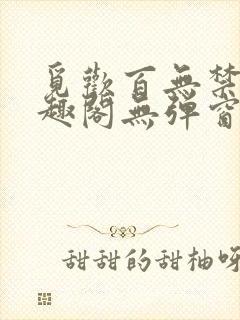 覓歡百無禁
趣閣無彈窗
甜甜的甜柚呀